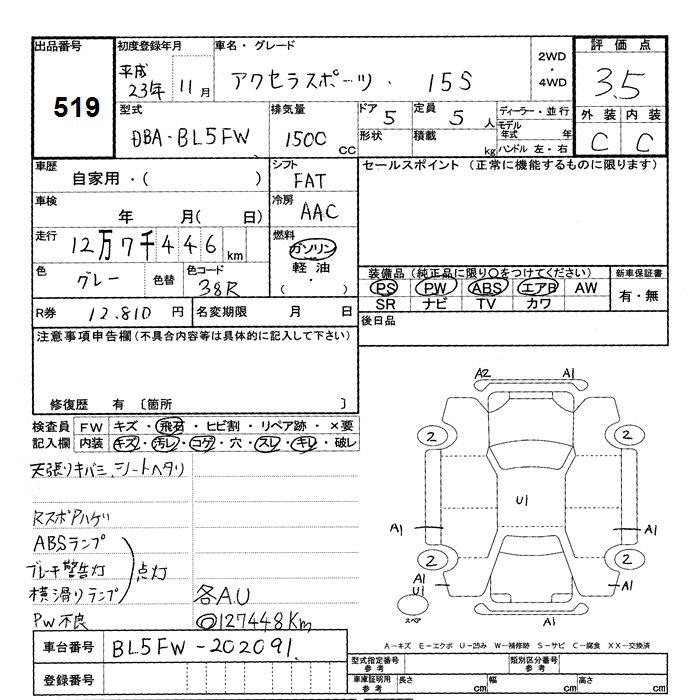 出品番号 初度登録年月 車名・グレード 2WD ・ 4WD 評価点
519 平成 23年 11月 アクセラスポーツ 15S 3.5
型式 排気量 ドア 5 定員 5 人 ディーラー・並行 外装 内装
DBA-BL5FW 1500 CC 形状 積載 kg モデル年式 年 C C
ハンドル 左・右
車歴 自家用・( ) シフト FAT セールスポイント (正常に機能するものに限ります)
車検 年 月( 日) 冷房 AAC
走行 12万7千446 km 燃料 ガソリン
軽油
・( )
色 グレー 色替 色コード 38R 装備品 (純正品に限り○をつけてください) 新車保証書
PS PW ABS エアB AW 有・無
SR ナビ TV カワ
R券 12.810 円 名変期限 月 日 後日品
注意事項申告欄(不具合内容等は具体的に記入して下さい)
修復歴 有 〔箇所 〕
検査員 FW キズ・飛石・ヒビ割・リペア跡・×要
記入欄 内装 キズ・汚レ・コゲ・穴・スレ・キレ・破レ
天張りキバミ、シートヘタリ
RスポAハゲリ
ABSランプ
ブレーキ警告灯 点灯
横滑りランプ 各A.U
PW不良 ◎127448Km
車台番号 BL5FW-202091
登録番号
A2 A1
2 2
U1
A1 A1
2 2
A1 A1
U1
スペア A1
A-キズ E-エクボ U-凹み W-補修跡 S-サビ C-腐食 XX-交換済
型式指定番号 参考 類別区分番号 参考
車庫証明用 参考 長さ cm 幅 cm 高さ cm